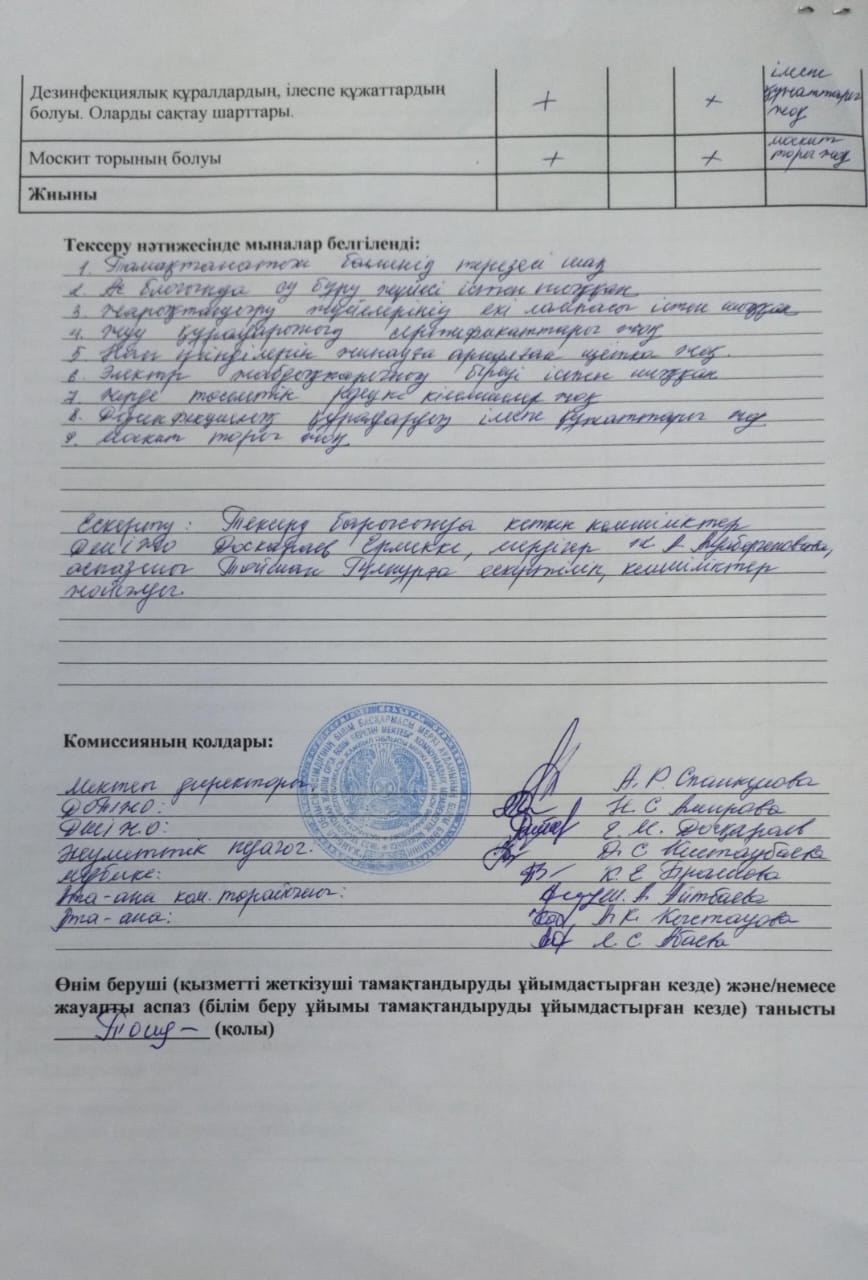 Дезинфекциялық құралдардың, ілеспе құжаттардың
болуы. Оларды сақтау шарттары.
+
+
ілеспе
құжаттары
жоқ
Москит торының болуы
+
+
москит
торы жоқ
Жиыны
Тексеру нәтижесінде мыналар белгіленді:
1. Тамақтанатын бөлменің терезесі
2. Ас блогында су бұру жүйесі істен шыққан
3. Жарықтандыру жүйелерінің екі лампасы істен шыққан
4. Жуу құралдарының сертификаттары жоқ
5. Нан үгінділерін жинауға арналған щетка жоқ.
6. Электр жабдықтарының біреуі істен шыққан
7. Жерге төселетін резеңке кілемшелер жоқ
8. Дезинфекциялық құралдардың ілеспе құжаттары жоқ
9. Москит торы жоқ
Ескерту: Тексеру барысында кеткен кемшіліктер
ДШІЖО Досқараев Ерликке, мердігер
аспазшы Гүлнұрға ескертіліп, кемшіліктер
жойылды.
Комиссияның қолдары:
Мектеп директоры: А. Р. Спанкулова
ДОТІЖО: Н. С. Амирова
ДШІЖО: Е. М. Досқараев
Әлеуметтік педагог: Д. С. Кистаубаева
Мейірбике: К. Е.
Ата-ана ком. төрайымы: А. Айтбаева
Ата-ана: К. Кыстауова
С. Абаева
Өнім беруші (қызметті жеткізуші тамақтандыруды ұйымдастырған кезде) және/немесе
жауапты аспаз (білім беру ұйымы тамақтандыруды ұйымдастырған кезде) танысты
(қолы)